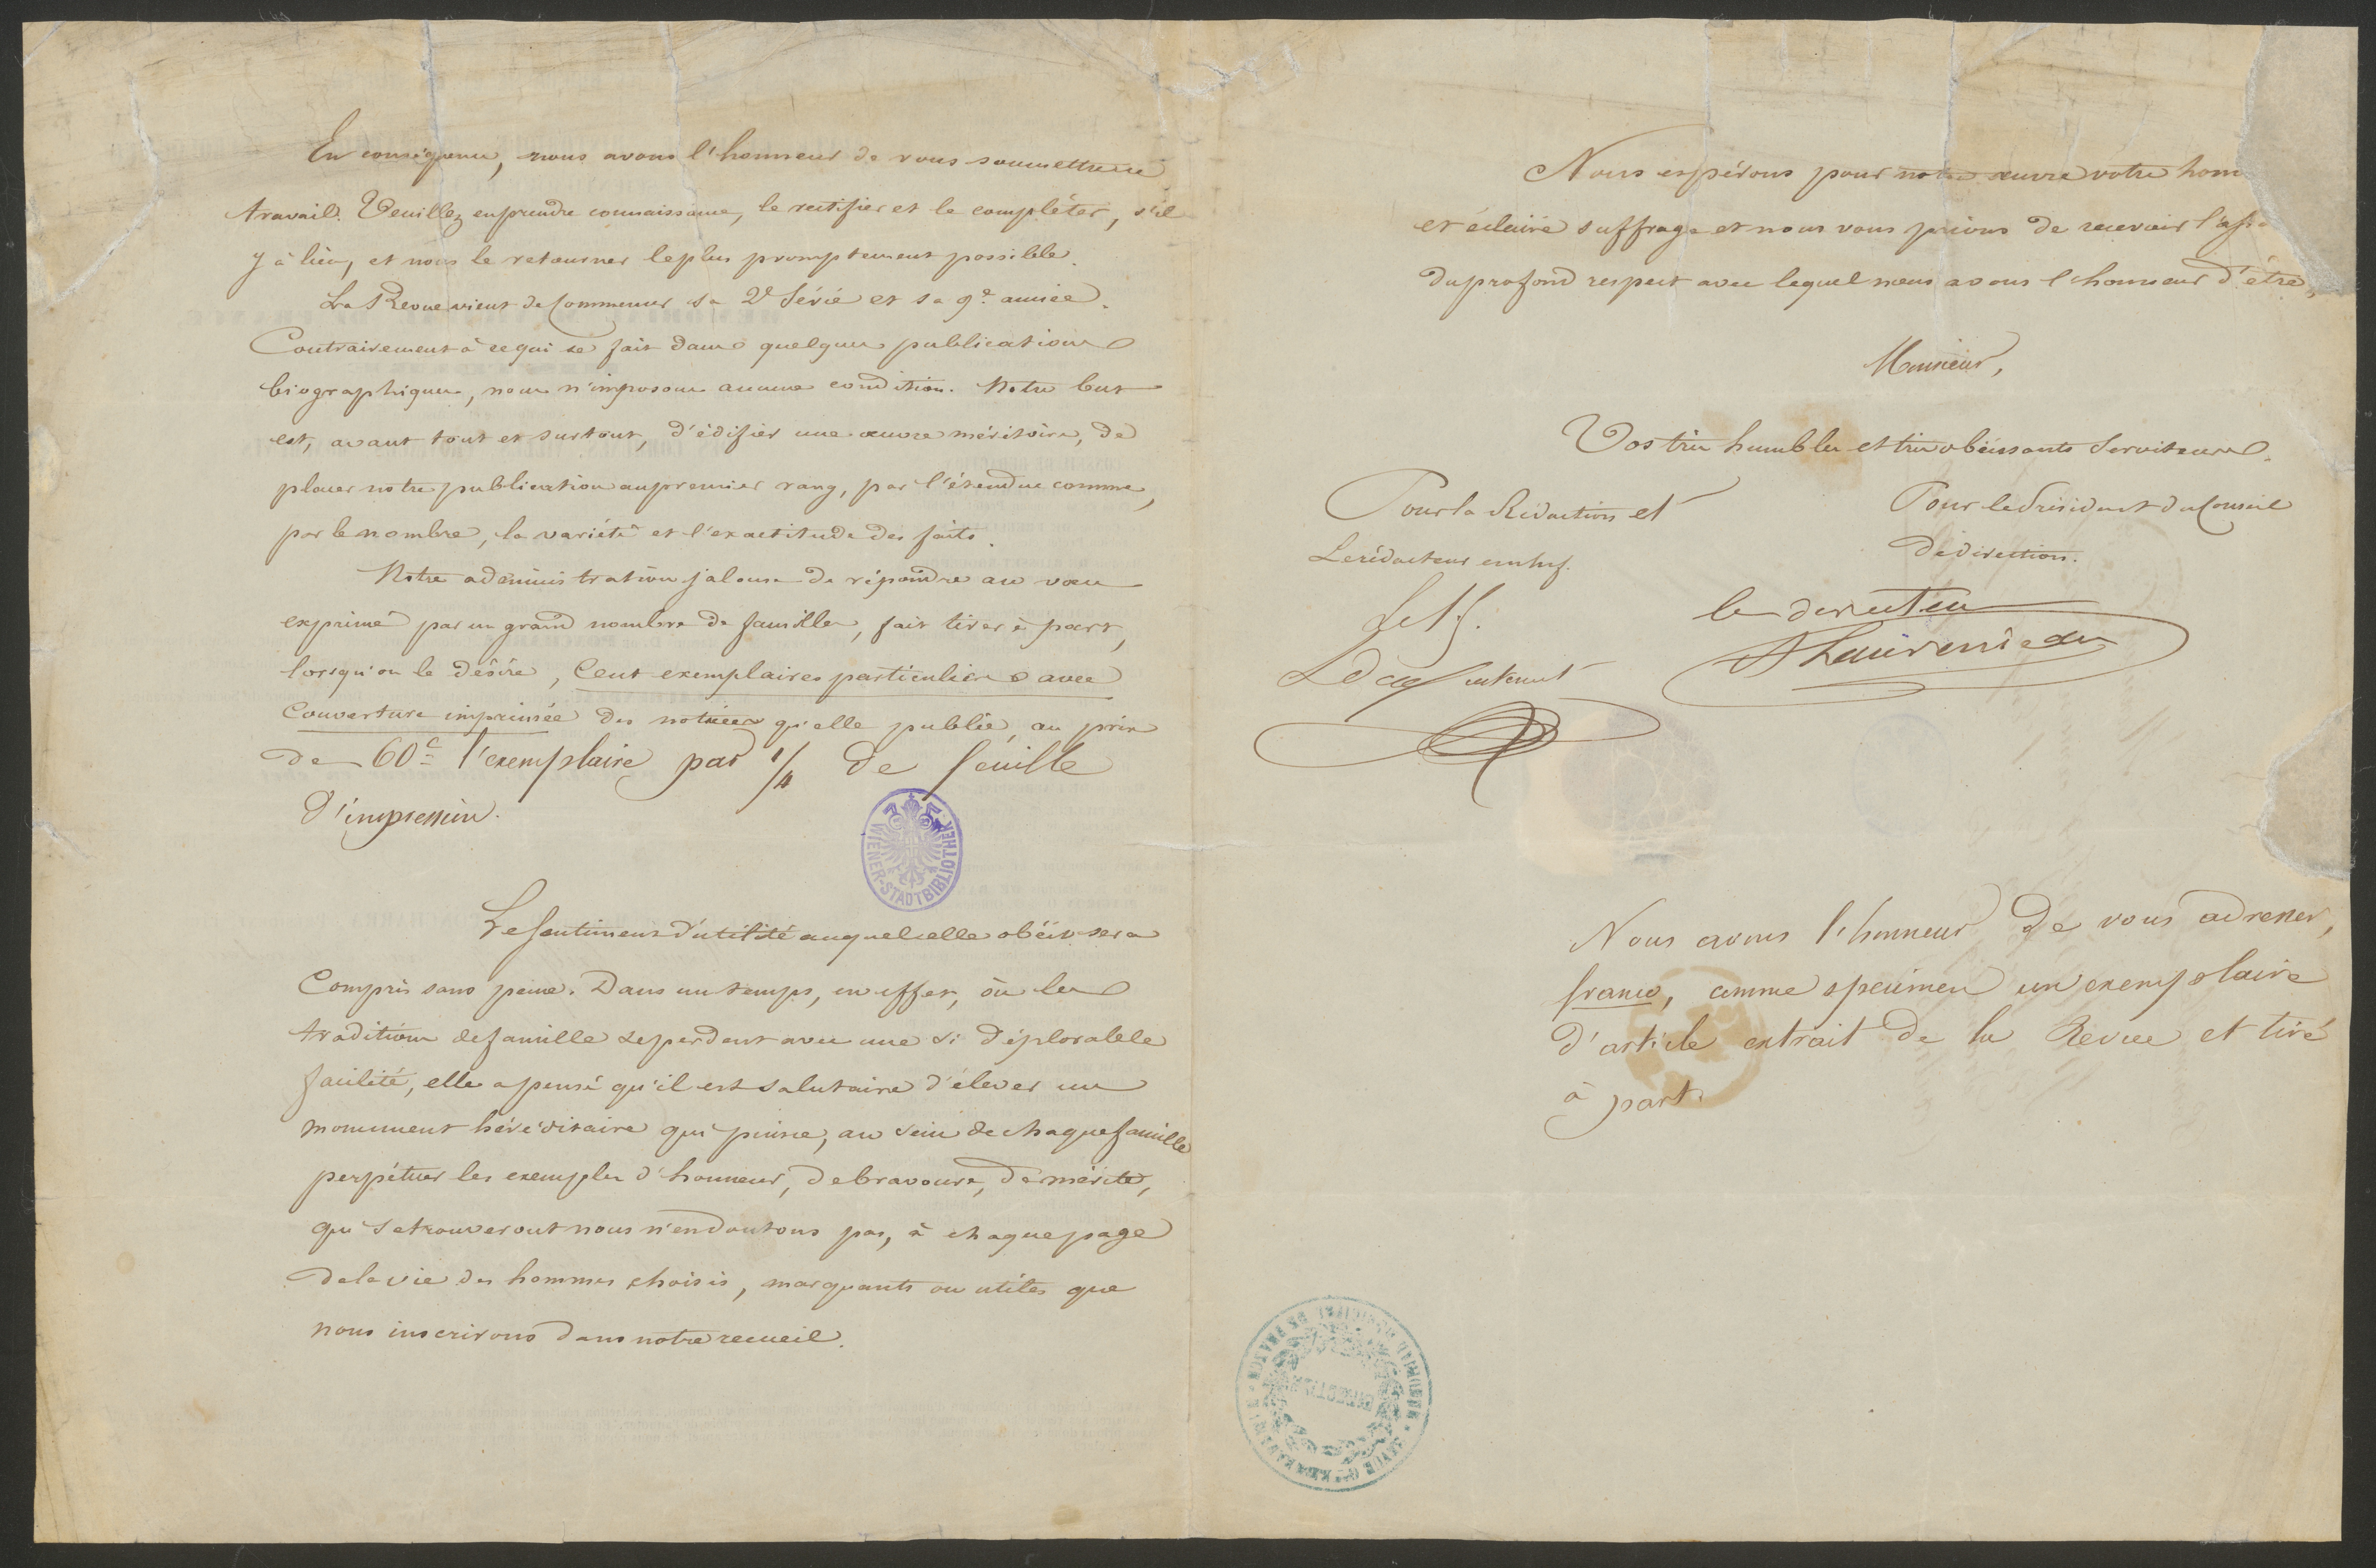 En conséquence, nous avons l'honneur de vous soumettre ce
travail. Veuillez en prendre connaissance, le rectifier et le compléter, s'il
y à lieu, et nous le retourner le plus promptement possible.
La Revue vient de Commencer sa 2e Série et sa 9e année.
Contrairement à ce qui se fait dans quelques publications
biographiques, nous n'imposons aucune condition. Notre but
est, avant tout et surtout, d'édifier une œuvre méritoire, de
placer notre publication au premier rang, par l'étendue comme,
par le nombre, la variété et l'exactitude des faits.
Notre administration jalouse de répondre au vœu
exprimé par un grand nombre de familles, fait tirer à part,
lorsqu'on le désire, Cent exemplaires particuliers avec
Couverture imprimée des notices qu'elle publie, au prix
de 60c l'exemplaire par 1/4 de feuille
d'impression.
WIENER-STADTBIBLIOTHEK
Le sentiment d'utilité auquel elle obéit sera
Compris sans peine. Dans un temps, en effet, où les
traditions de famille se perdent avec une si déplorable
facilité, elle a pensé qu'il est salutaire d'élever un
monument héréditaire qui puisse, au sein de chaque famille
perpétuer les exemples d'honneur, de bravoure, de mérite,
qui se trouveront nous n'en doutons pas, à chaque page
de la vie des hommes choisis, marquants ou utiles que
nous inscrivons dans notre recueil.
Nous espérons pour notre œuvre votre hono
et éclairé suffrage et nous vous prions de recevoir l'ass
du profond respect avec lequel nous avons l'honneur d'être,
Monsieur,
Vos très humbles et très obéissants Serviteurs.
Pour la Rédaction et
Le rédacteur en chef.
Pour le Président du Conseil
de direction.
le directeur
Nous avons l'honneur de vous adresser,
franco, comme specimen un exemplaire
d'article extrait de la Revue et tiré
à part.